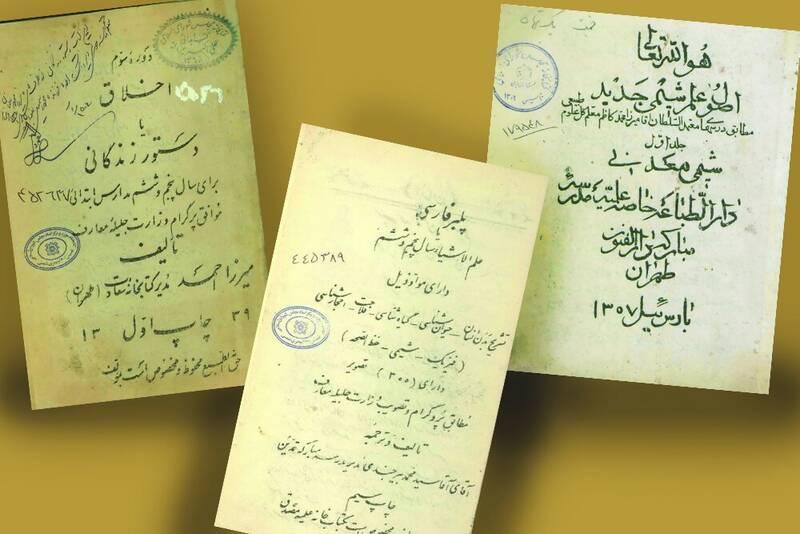 دورهٔ سوم
اخلاق
یا
دستور زندگانی
برای سال پنجم و ششم مدارس ابتدائی
موافق پرگرام وزارت جلیلهٔ معارف
تألیف
میرزا احمد مدیر کتابخانه سعادت (طهران)
۳۹ چاپ اول ۱۳
حق الطبع محفوظ و مخصوص است بمؤلف
پلبر فارسی
علم الاشیاء سال پنجم و ششم
دارای مواد ذیل
۴۴۵۳۸۹
تشریح بدن انسان - حیوان شناسی - گیاه شناسی - فلاحت - احجار شناسی
(فیزیک - شیمی - حفظ الصحه)
دارای (۳۰۰) تصویر
مطابق پروگرام و تصویب وزارت جلیله معارف
تألیف و ترجمه
آقای آقا سید محمد بیرجندی مدیر مدرسه مبارکه تدین
چاپ سیم
هو الله تعالی
اصول علم شیمی جدید
جلد اول
شیمی معدنی
دار الطباعه خاصه علمیه مدرسه
مبارکه دار الفنون
طهران
بارس ئیل ۱۳۰۷